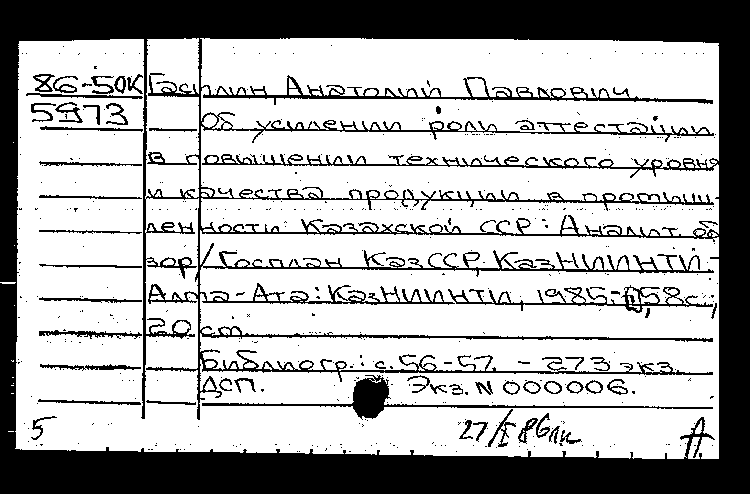 86-50К Гасилин, Анатолий Павлович.
5973 Об усилении роли аттестации
в повышении технического уровня
и качества продукции в промыш-
ленности Казахской ССР: Аналит. об
зор/Госплан КазССР, КазНИИНТИ.-
Алма-Ата: КазНИИНТИ, 1985.- 58с.;
20 cm
Библиогр.: с. 56-57. - 273 экз.
ДСП. Экз. N 000006.
5 27/I 86 А